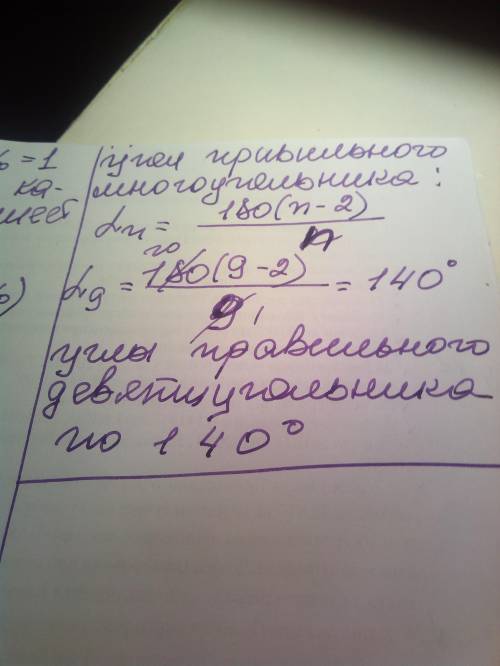 % = 1
ка-
меет
%)
угол правильного
многоугольника:
αn = 180(n-2)
n
20
α9 = 180(9-2) = 140°
9 1
углы правильного
девятиугольника
по 140°